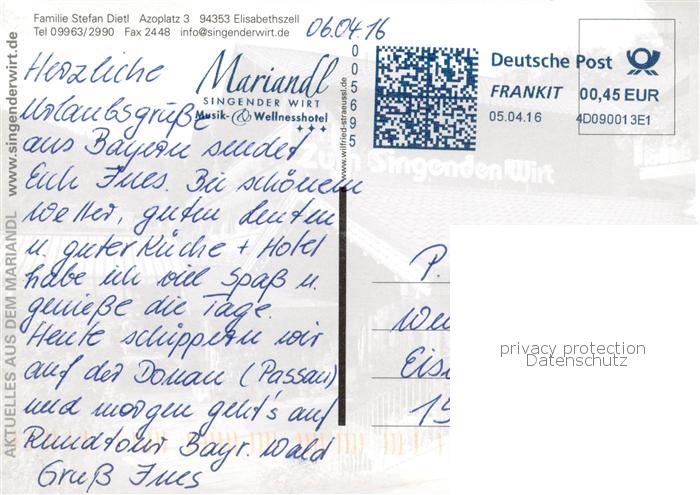 Familie Stefan Dietl Azoplatz 3 94353 Elisabethszell
Tel 09963/2990 Fax 2448 info@singenderwirt.de
06.04.16
Mariandl
SINGENDER WIRT
Musik- & Wellnesshotel
Herzliche
Urlaubsgrüße
aus Bayern sendet
Euch Ines. Bei schönem
Wetter, guten Leuten
u. guter Küche + Hotel
habe ich viel Spaß u.
genieße die Tage.
Heute schippern wir
auf der Donau (Passau)
und morgen geht's auf
Rundtour Bayr. Wald
Gruß Ines
AKTUELLES AUS DEM MARIANDL www.singenderwirt.de
0005695
www.wilfried-straeussl.de
Deutsche Post
FRANKIT 00,45 EUR
05.04.16 4D090013E1
Zum Singenden Wirt
P.
Eis
privacy protection
Datenschutz